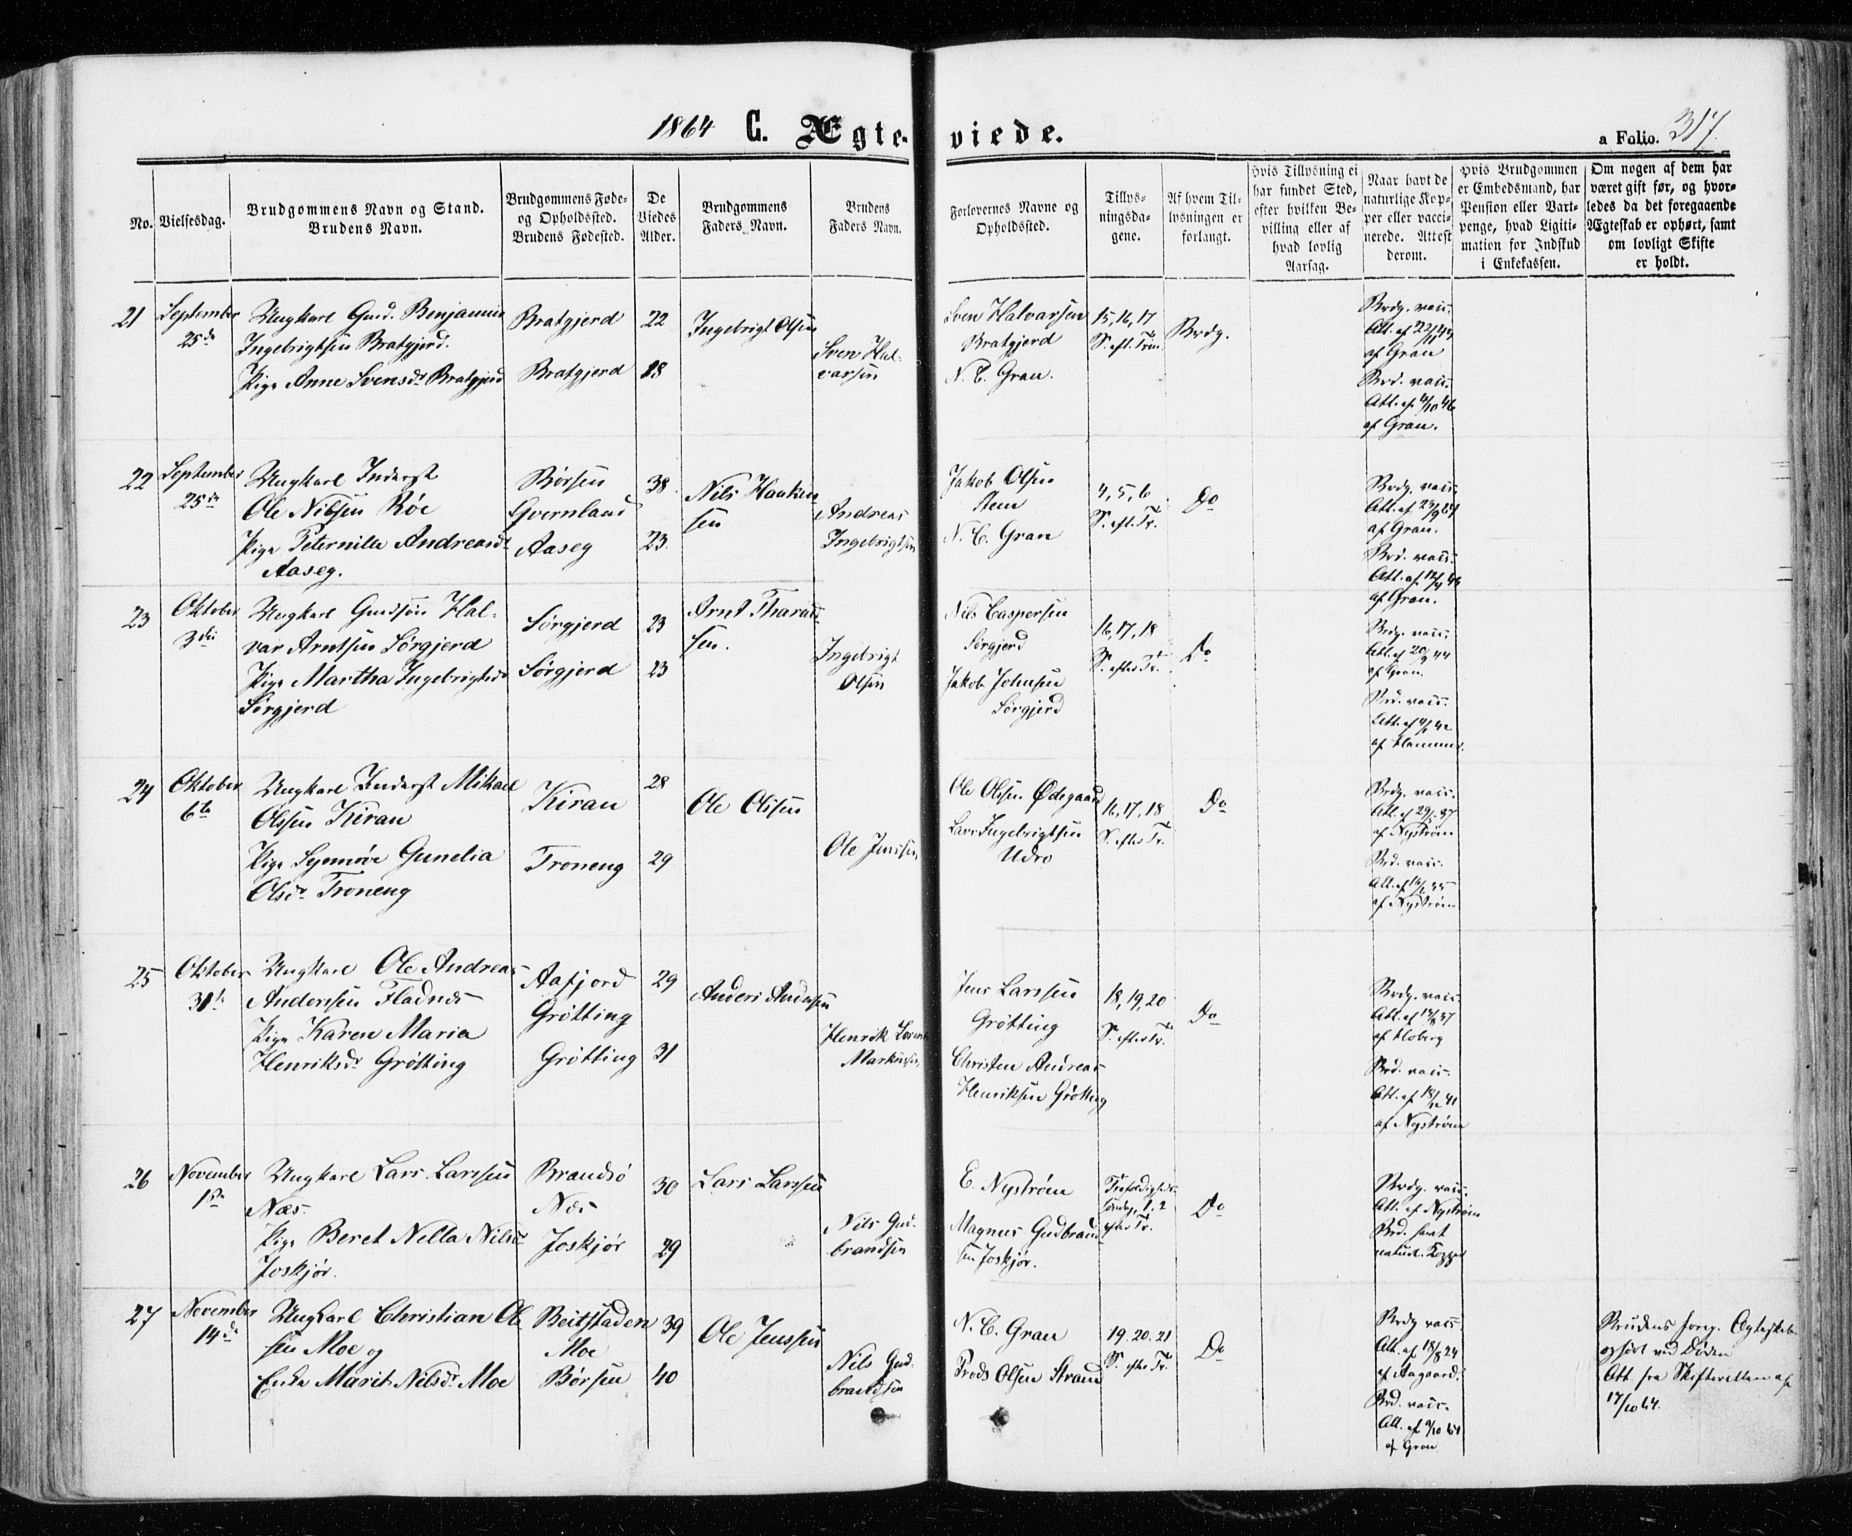 1864 C. Ægte-viede.
a Folio. 317.
No.
Vielsesdag.
Brudgommens Navn og Stand.
Brudens Navn.
Brudgommens Føde-
og Opholdssted.
Brudens Fødested.
De
Viedes
Alder.
Brudgommens
Faders Navn.
Brudens
Faders Navn.
Forlovernes Navne og
Opholdssted.
Tillys-
ningsda-
gene.
Af hvem Til-
lysningen er
forlangt.
Hvis Tillysning ei
har fundet Sted,
efter hvilken Be-
villing eller af
hvad lovlig
Aarsag.
Naar havt de
naturlige Kop-
per eller vacci-
nerede. Attest
derom.
Hvis Brudgommen
er Embedsmand, har
Pension eller Vart-
penge, hvad Ligiti-
mation for Indskud
i Enkekassen.
Om nogen af dem har
været gift før, og hvor-
ledes da det foregaaende
Ægteskab er ophørt, samt
om lovligt Skifte
er holdt.
21
September
25de
Ungkarl Gaard. Benjamin
Ingebrigtsen Bratgjerd.
Pige Anne Svensdr Bratgjerd
Bratgjerd
Bratgjerd
22
18
Ingebrigt Olsen
Sven Hal-
varsen
Sven Halvarsen
Bratgjerd
N. C. Gran.
15, 16, 17
S. eft. Trin.
Brdg.
Brdg. vacc.
Att. af
af Gran
Brd. vacc.
Att. af 4/10 46
af Gran.
22
September
25de
Ungkarl Inderst
Ole Nilsen Røe
Pige Peternille Andreasdr
Aaseg.
Børsen
Gvernland
Aaseg
38
23
Nils Haaken
sen
Andreas
Ingebrigtsen
Jakob Olsen
Rem
N. C. Gran
4, 5, 6
S. eft. Tr.
Do
Brdg. vacc.
Att. af 23/9 64
af Gran.
Brd. vacc.
Att. af
af Gran.
23
Oktober
3die
Ungkarl Gaardsøn Hal-
var Arntsen Sørgjerd
Pige Martha Ingebrigtsdr
Sørgjerd
Sørgjerd
Sørgjerd
23
23
Arnt Tharald
sen.
Ingebrigt
Olsen
Nils Caspersen
Sørgjerd
Jakob Johnsen
Sørgjerd
16, 17, 18
S. efter Tr.
Do
Brdg. vacc.
Att. af 20/9 44
af Gran.
Brd. vacc.
Att. af
af Hammer.
24
Oktober
6te
Ungkarl Inderst Mikael
Olsen Kiran
Pige Synnøve Gunelia
Olsdr Troneng
Kiran
Troneng
28
29
Ole Olsen
Ole Jenssen
Ole Olsen Ødegaard
Lars Ingebrigtsen
Udro
16, 17, 18
S. efter Tr.
Do
Brdg. vacc.
Att. af 37
af Nystrøm
Brd. vacc.
Att. af
af Nystrøm
25
Oktober
31te
Ungkarl Ole Andreas
Andersen Fladnes
Pige Karen Maria
Henriksdr Grøtting
Aafjord
Grøtting
Grøtting
29
31
Anders Andersen
Henrik Lorents
Markussen
Jens Larssen
Grøtting
Christen Andreas
Henriksen Grøtting
18, 19, 20
S. efter Tr.
Do
Brdg. vacc.
Att. af 37
af Hoberg
Brd. vacc.
Att. af 18/12 41
af Nystrøm
26
November
1ste
Ungkarl Lars Larssen
Næs.
Pige Beret Nella Nilsdr
Joskjør.
Brandsø
Næs
Joskjør
30
29
Lars Larssen
Nils Gud-
brandsen
E. Nystrøm
Magnus Gudbrand
sen Joskjør.
Trefoldigheds-
søndag, 1, 2
efter Tr.
Do
Brdg. vacc.
Att. af Nystrøm
Brd. havt
naturl. Kopper
27
November
14de
Ungkarl Christian Ol
sen Moe og
Enke Marit Nilsdr Moe
Beitstaden
Moe
Børsen
39
40
Ole Jenssen
Nils Gud-
brandsen
N. C. Gran
Trods Olsen Strand
19. 20. 21
S. efter Tr.
Do
Brdg vacc
Att. af 18/8 24
af Aagaard.
Brd. vacc.
Att. af 9/10 64
af Gran
Brudens foreg. Ægteskab
ophørt ved Døden
Att fra Skifteretten af
17/10 64.